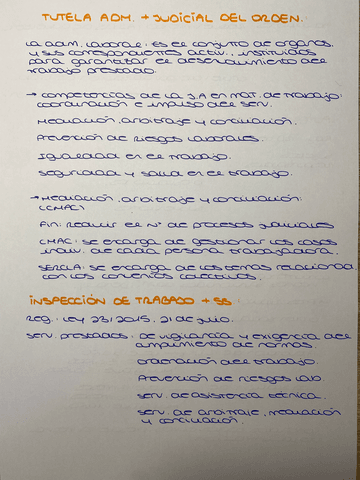 TUTELA ADM. + JUDICIAL DEL ORDEN.
La adm. laboral: es el conjunto de organos
y sus correspondientes activ., instituidos
para garantizar el desenvolvimiento del
trabajo prestado.
→ competencias de la J.A en mat. de trabajo:
coordinación e impulso del serv.
Mediación, arbitraje y conciliación.
Prevención de riesgos laborales.
Igualdad en el trabajo.
Seguridad y salud en el trabajo.
→ Mediación, arbitraje y conciliación:
(CMAC)
Fin: reducir el Nº de procesos judiciales
CMAC: se encarga de gestionar los casos
indiv. de cada persona trabajadora.
SERCLA: se encarga de los temas relaciona
con los convenios colectivos.
INSPECCIÓN DE TRABAJO + SS
Reg.: Ley 23/2015, 21 de julio.
Serv. prestados: De vigilancia y exigencia del
cumplimiento de normas.
Ordenación del trabajo.
Prevención de riesgos lab.
Serv. de asistencia técnica.
Serv. de arbitraje, mediación
y conciliación.